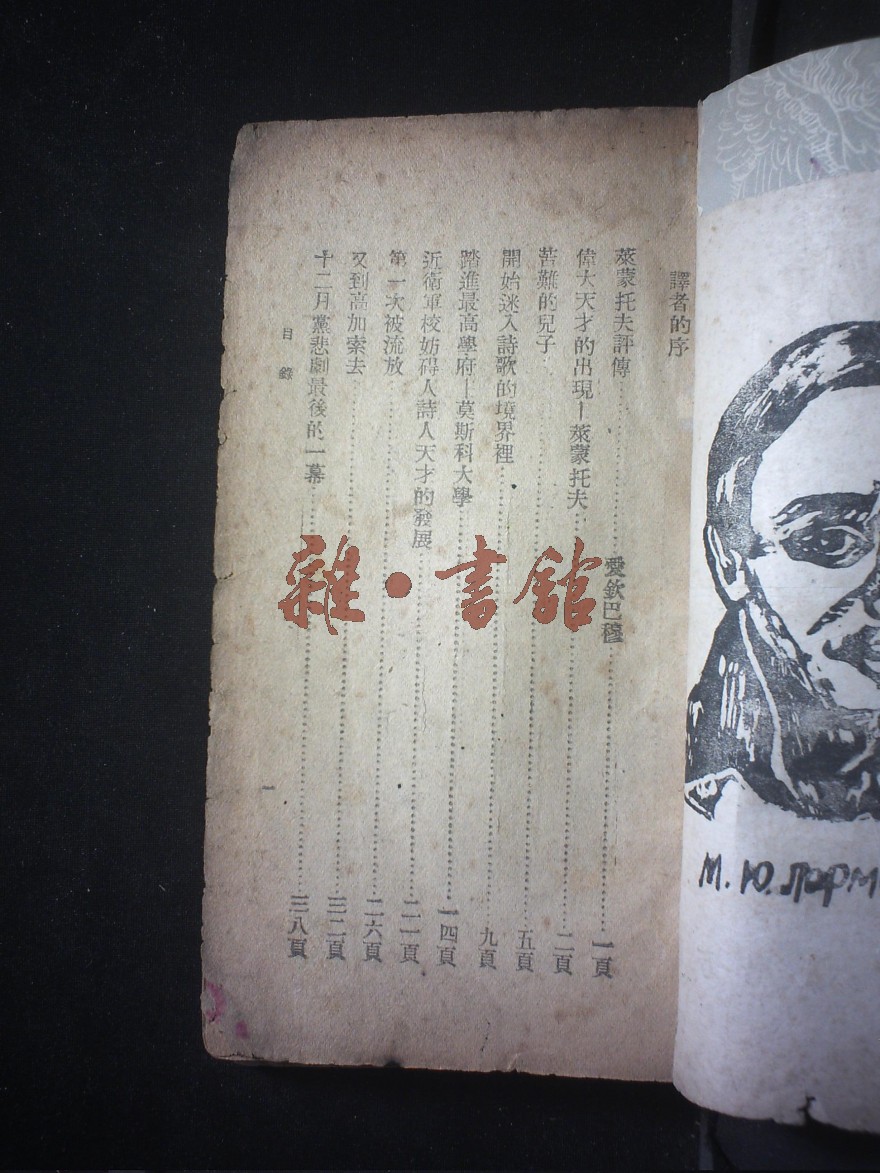 譯者的序
萊蒙托夫評傳……愛欽巴穆……一頁
偉大天才的出現—萊蒙托夫……二頁
苦難的兒子……五頁
開始迷入詩歌的境界裡……九頁
踏進最高學府—莫斯科大學……一四頁
近衛軍校妨碍人詩人天才的發展……二一頁
第一次被流放……二六頁
又到高加索去……三二頁
十二月黨悲劇最後的一幕……三八頁
目錄
一
雜·書館
М.Ю.Лорм